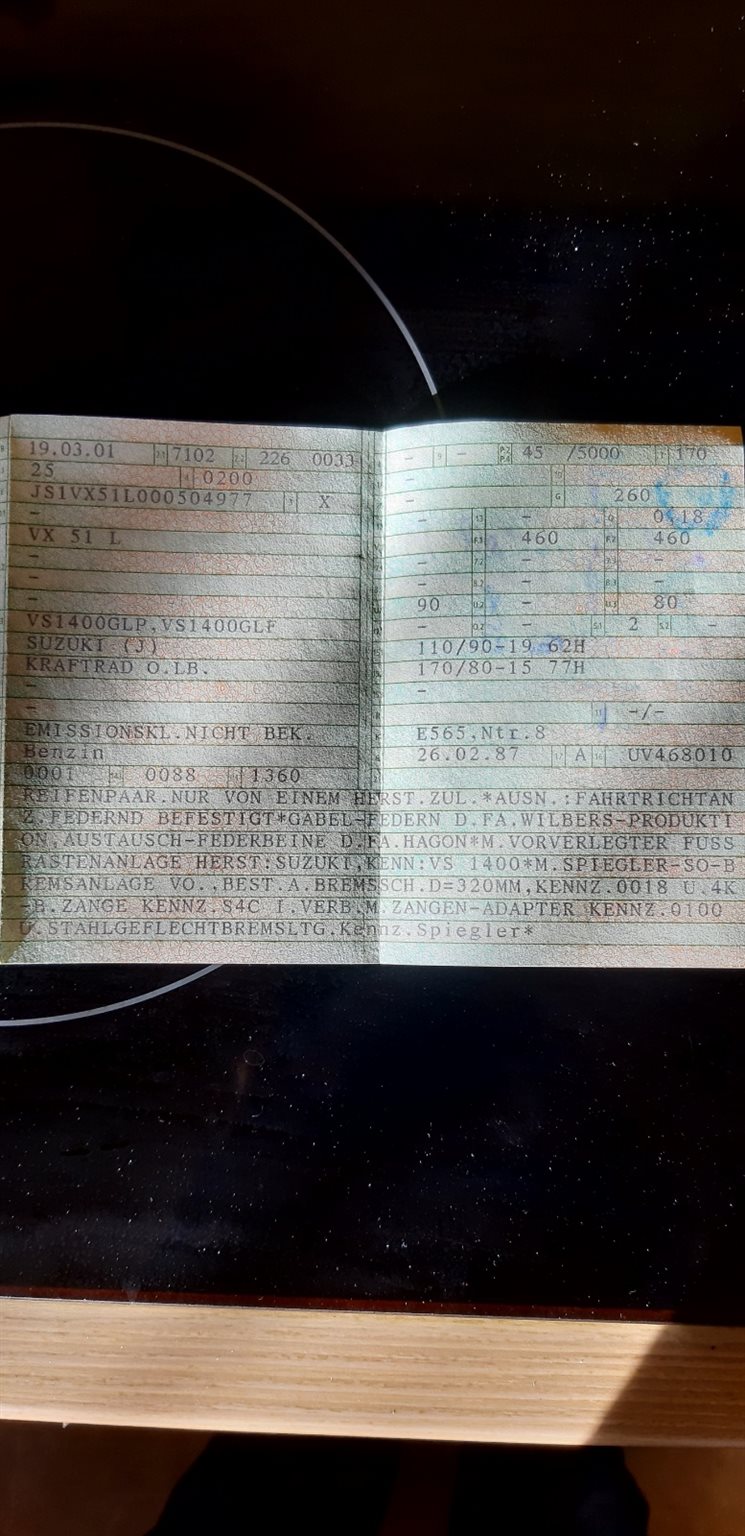 19.03.01 7102 226 0033
25 0200
JS1VX51L000504977 X
-
VX 51 L
-
-
-
VS1400GLP,VS1400GLF
SUZUKI (J)
KRAFTRAD O.LB.
-
-
EMISSIONSKL.NICHT BEK.
Benzin
0001 0088 1360
- - 45 /5000 170
-
- G 260
- - 0,18
- 460 460
- - -
- - -
90 - 80
- - 2 -
110/90-19 62H
170/80-15 77H
-
-/-
E565,Ntr.8
26.02.87 A UV468010
REIFENPAAR.NUR VON EINEM HERST.ZUL.*AUSN.:FAHRTRICHTAN
Z.FEDERND BEFESTIGT*GABEL-FEDERN D.FA.WILBERS-PRODUKTI
ON,AUSTAUSCH-FEDERBEINE D.FA.HAGON*M.VORVERLEGTER FUSS
RASTENANLAGE HERST:SUZUKI,KENN:VS 1400*M.SPIEGLER-SO-B
REMSANLAGE VO..BEST.A.BREMSSCH.D=320MM,KENNZ.0018 U.4K
-B.ZANGE KENNZ.S4C I.VERB.M.ZANGEN-ADAPTER KENNZ.0100
U.STAHLGEFLECHTBREMSLTG.Kennz.Spiegler*